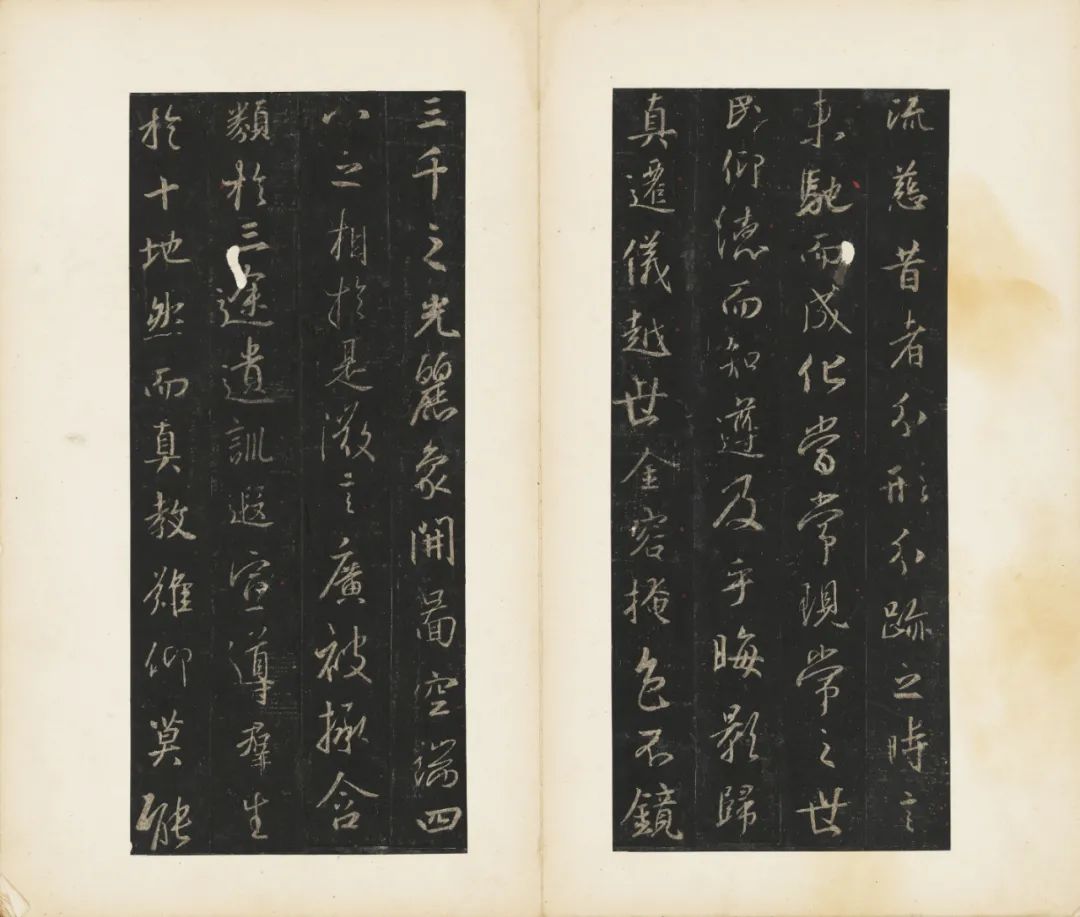 流慈昔者分形分跡之時言
未馳而成化當常現常之世
民仰德而知遵及乎晦影歸
真遷儀越世金容掩色不鏡
三千之光麗象開圖空端四
八之相於是微言廣被拯含
類於三途遺訓遐宣導羣生
於十地然而真教難仰莫能